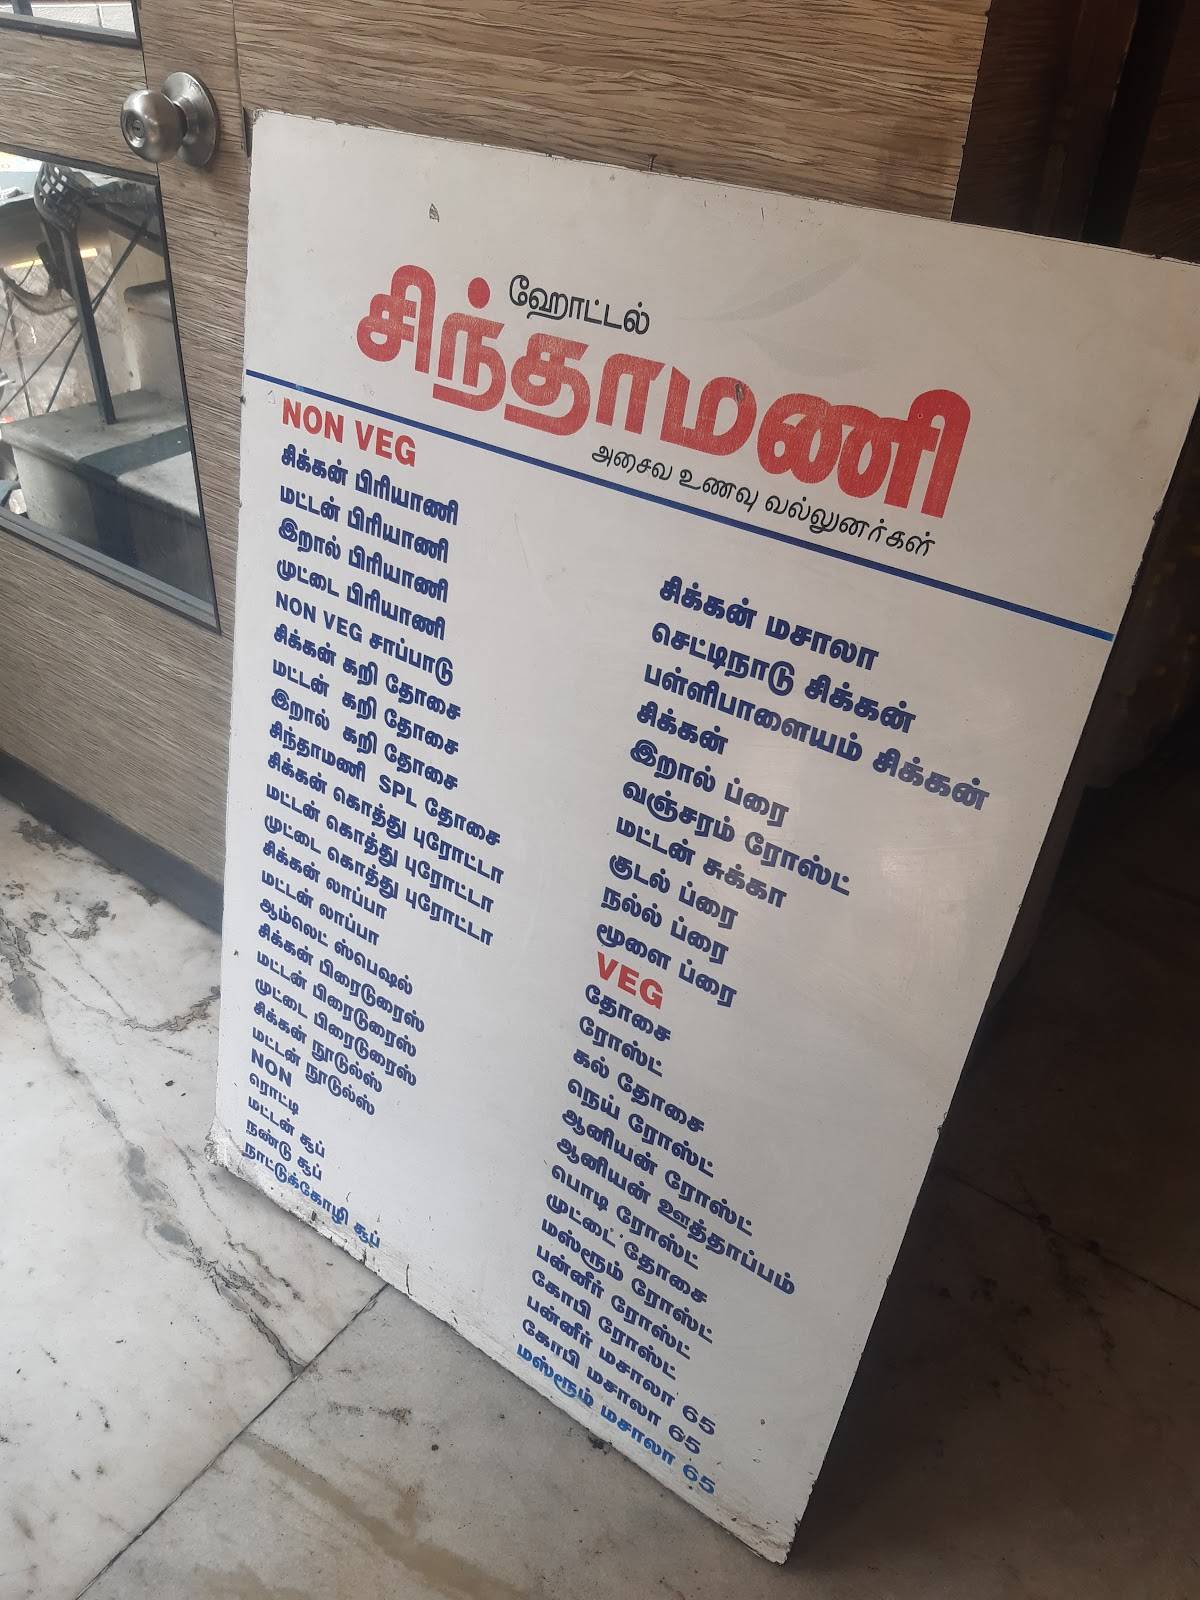 ஹோட்டல்
சிந்தாமணி
அசைவ உணவு வல்லுனர்கள்
NON VEG
சிக்கன் பிரியாணி
மட்டன் பிரியாணி
இறால் பிரியாணி
முட்டை பிரியாணி
NON VEG சாப்பாடு
சிக்கன் கறி தோசை
மட்டன் கறி தோசை
இறால் கறி தோசை
சிந்தாமணி SPL தோசை
சிக்கன் கொத்து புரோட்டா
மட்டன் கொத்து புரோட்டா
முட்டை கொத்து புரோட்டா
சிக்கன் லாப்பா
மட்டன் லாப்பா
ஆம்லெட் ஸ்பெஷல்
சிக்கன் பிரைடுரைஸ்
மட்டன் பிரைடுரைஸ்
முட்டை பிரைடுரைஸ்
சிக்கன் நூடுல்ஸ்
மட்டன் நூடுல்ஸ்
NON
ரொட்டி
மட்டன் சூப்
நண்டு சூப்
நாட்டுக்கோழி சூப்
சிக்கன் மசாலா
செட்டிநாடு சிக்கன்
பள்ளிபாளையம் சிக்கன்
சிக்கன்
இறால் ப்ரை
வஞ்சரம் ரோஸ்ட்
மட்டன் சுக்கா
குடல் ப்ரை
நல்ல் ப்ரை
மூளை ப்ரை
VEG
தோசை
ரோஸ்ட்
கல் தோசை
நெய் ரோஸ்ட்
ஆனியன் ரோஸ்ட்
ஆனியன் ஊத்தாப்பம்
பொடி ரோஸ்ட்
முட்டை தோசை
மஸ்ரூம் ரோஸ்ட்
பன்னீர் ரோஸ்ட்
கோபி ரோஸ்ட்
பன்னீர் மசாலா 65
கோபி மசாலா 65
மஸ்ரூம் மசாலா 65